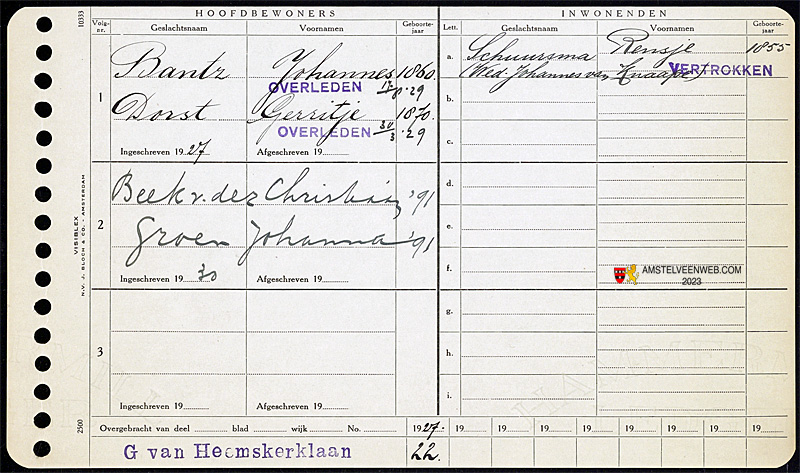 HOOFDBEWONERS
Volg-nr. Geslachtsnaam Voornamen Geboorte-jaar
1
Bantz Johannes 1860
OVERLEDEN
Dorst Gerritje 1870
OVERLEDEN 30/3 '29
Ingeschreven 1927 Afgeschreven 19
2
Beek v. der '91
Groen Johanna '91
Ingeschreven 1930 Afgeschreven 19
3
Ingeschreven 19 Afgeschreven 19
INWONENDEN
Lett. Geslachtsnaam Voornamen Geboorte-jaar
a. Schuursma Rensje 1855
(Wed. Johannes van
VERTROKKEN
b.
c.
d.
e.
f.
g.
h.
i.
AMSTELVEENWEB.COM
2023
Overgebracht van deel blad wijk No. 1927 19 19 19 19 19 19 19 19
G van Heemskerklaan 22
10333
VISIBLEX
N.V. J. BLOCH & CO. - AMSTERDAM
2500